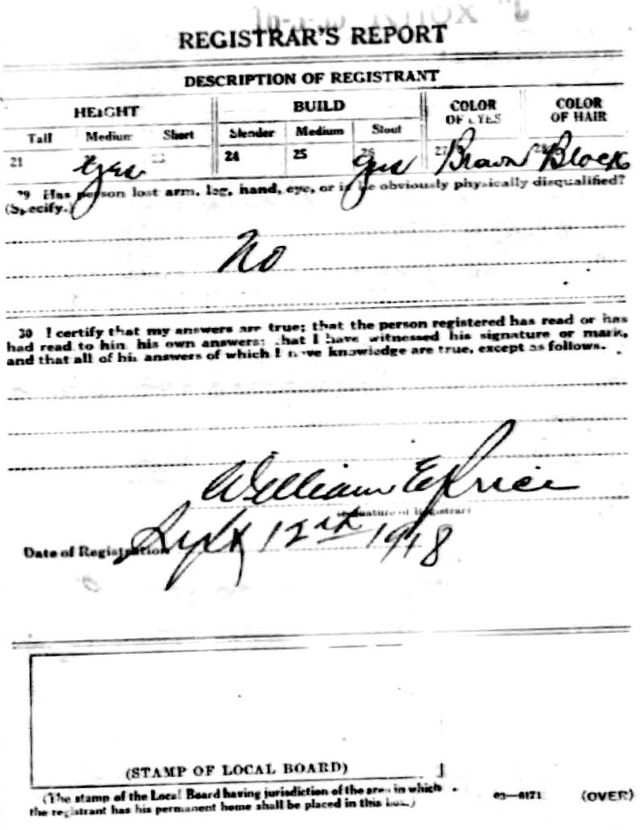 REGISTRAR'S REPORT
DESCRIPTION OF REGISTRANT
HEIGHT BUILD COLOR OF EYES COLOR OF HAIR
Tall Medium Short Slender Medium Stout
21 yes 23 24 25 26 yes 27 Brown 28 Black
29 Has person lost arm, leg, hand, eye, or is he obviously physically disqualified?
(Specify.)
No
30 I certify that my answers are true; that the person registered has read or has
had read to him his own answers; that I have witnessed his signature or mark,
and that all of his answers of which I have knowledge are true, except as follows.
William E Price
(Signature of Registrar)
Date of Registration Sept 12th 1918
(STAMP OF LOCAL BOARD)
(The stamp of the Local Board having jurisdiction of the area in which
the registrant has his permanent home shall be placed in this box.)
03—6171 (OVER)